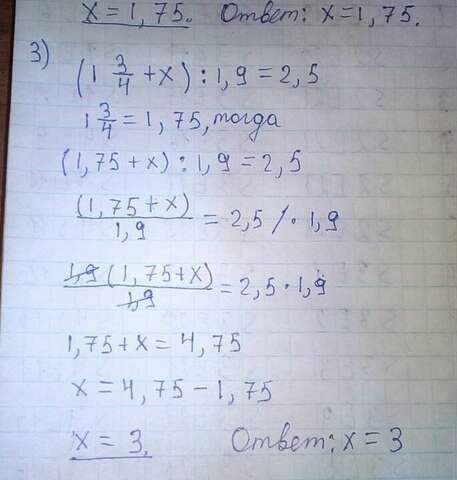 x=1,75. Ответ: x=1,75.
3)
(1 3/4 + x) : 1,9 = 2,5
1 3/4 = 1,75, тогда
(1,75+x) : 1,9 = 2,5
(1,75+x)/1,9 = 2,5 / · 1,9
1,9(1,75+x)/1,9 = 2,5 · 1,9
1,75+x = 4,75
x = 4,75 - 1,75
x = 3. Ответ: x = 3